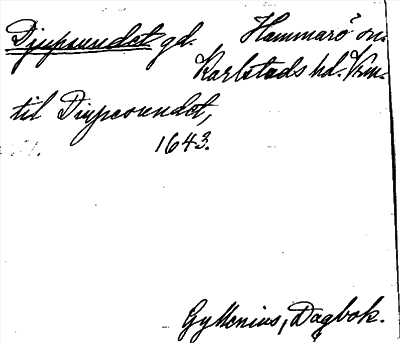 Djupsundet gd. Hammarö sn.
Karlstads hd. Vrm.
til Diupesundet,
1643.
Gyllenius, Dagbok.